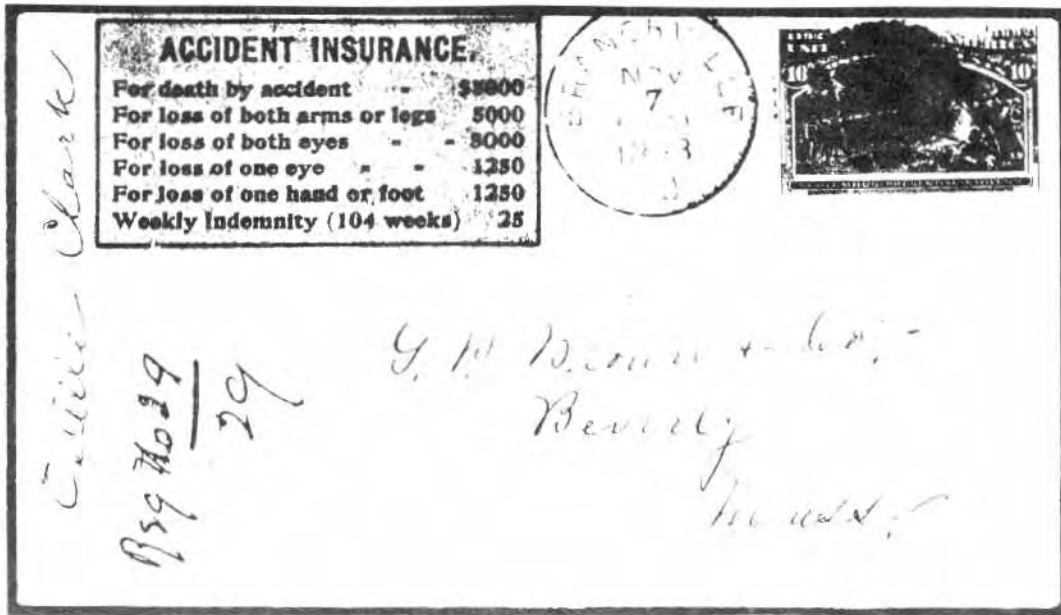 ACCIDENT INSURANCE.
For death by accident - $5000
For loss of both arms or legs 5000
For loss of both eyes - - 5000
For loss of one eye - - 1250
For loss of one hand or foot 1250
Weekly Indemnity (104 weeks) 25
BRANCHVILLE
NOV
7
1893
10¢ 10¢
Clark
Reg No 29
29
Brown & Co.
Beverly
Mass.